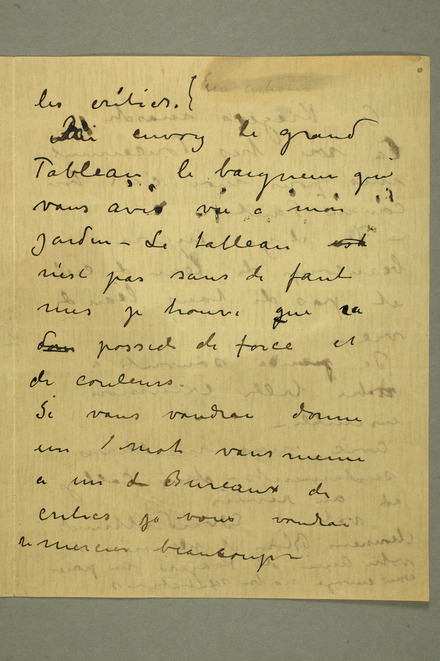 les critics.
ai envoy le grand
Tableau, le baigneur qui
vous avis vue a mon
Jardin - Le tableau est
n'est pas sans de faut
mes je trouve que sa
dom possed de force et
de couleurs.
Si vous voudrai donne
un mot vous meme
a un d Bureaux de
critics je vous voudrai
remercier beaucoup